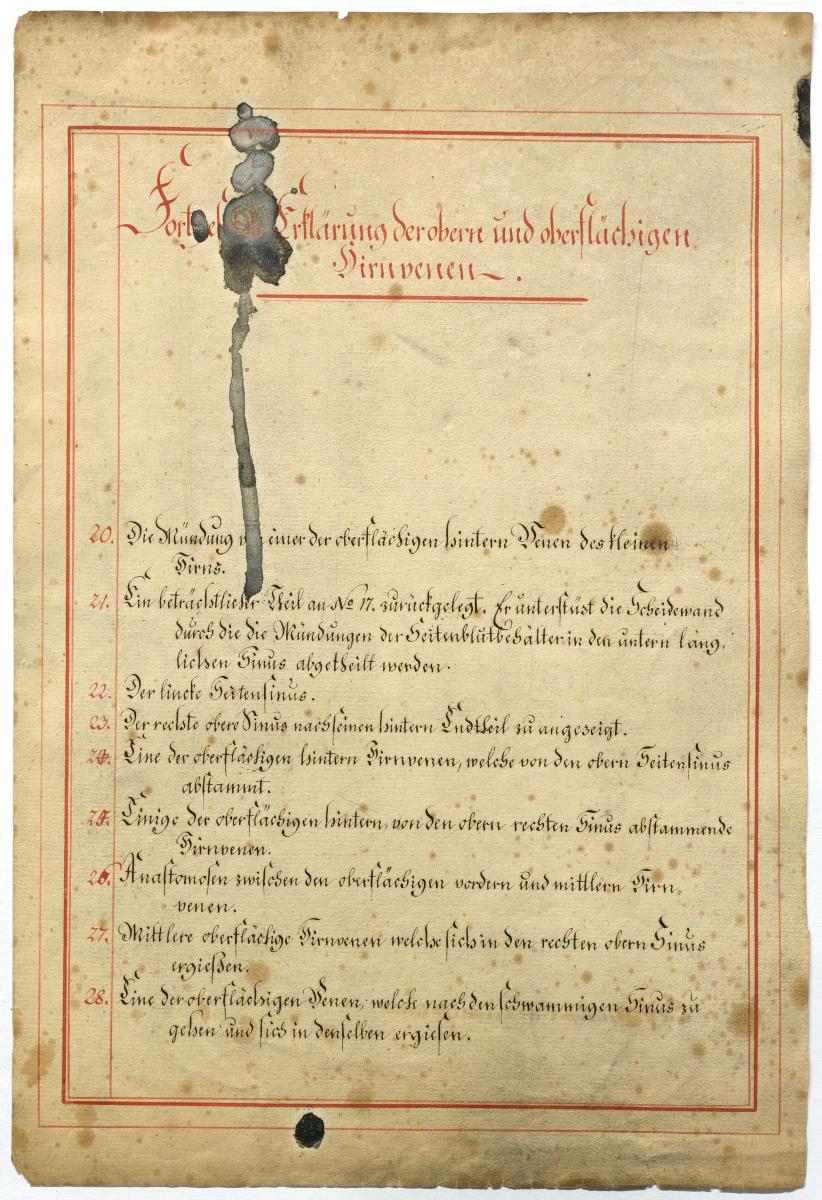 Erklärung der obern und oberflächigen
Hirnvenen.
20. Die Mündung einer der oberflächigen hintern Venen des kleinen
Hirns.
21. Ein beträchtlicher Theil an No 17. zurückgelegt. Er unterstüst die Scheidewand
durch die die Mündungen der Seitenblutbehälter in den untern läng,
lichen Sinus abgetheilt werden.
22. Der lincke Seitensinus.
23. Der rechte obere Sinus nach seinen hintern Endtheil zu angeseigt.
24. Eine der oberflächigen hintern Hirnvenen, welche von den obern Seitensinus
abstammt.
25. Einige der oberflächigen hintern, von den obern rechten Sinus abstammende
Hirnvenen.
26. Anastomosen zwischen den oberflächigen vordern und mittlern Hirn„
venen.
27. Mittlere oberflächige Hirnvenen welche sich in den rechten obern Sinus
ergießen.
28. Eine der oberflächigen Venen, welche nach den schwammigen Sinus zu
gehen und sich in denselben ergiesen.